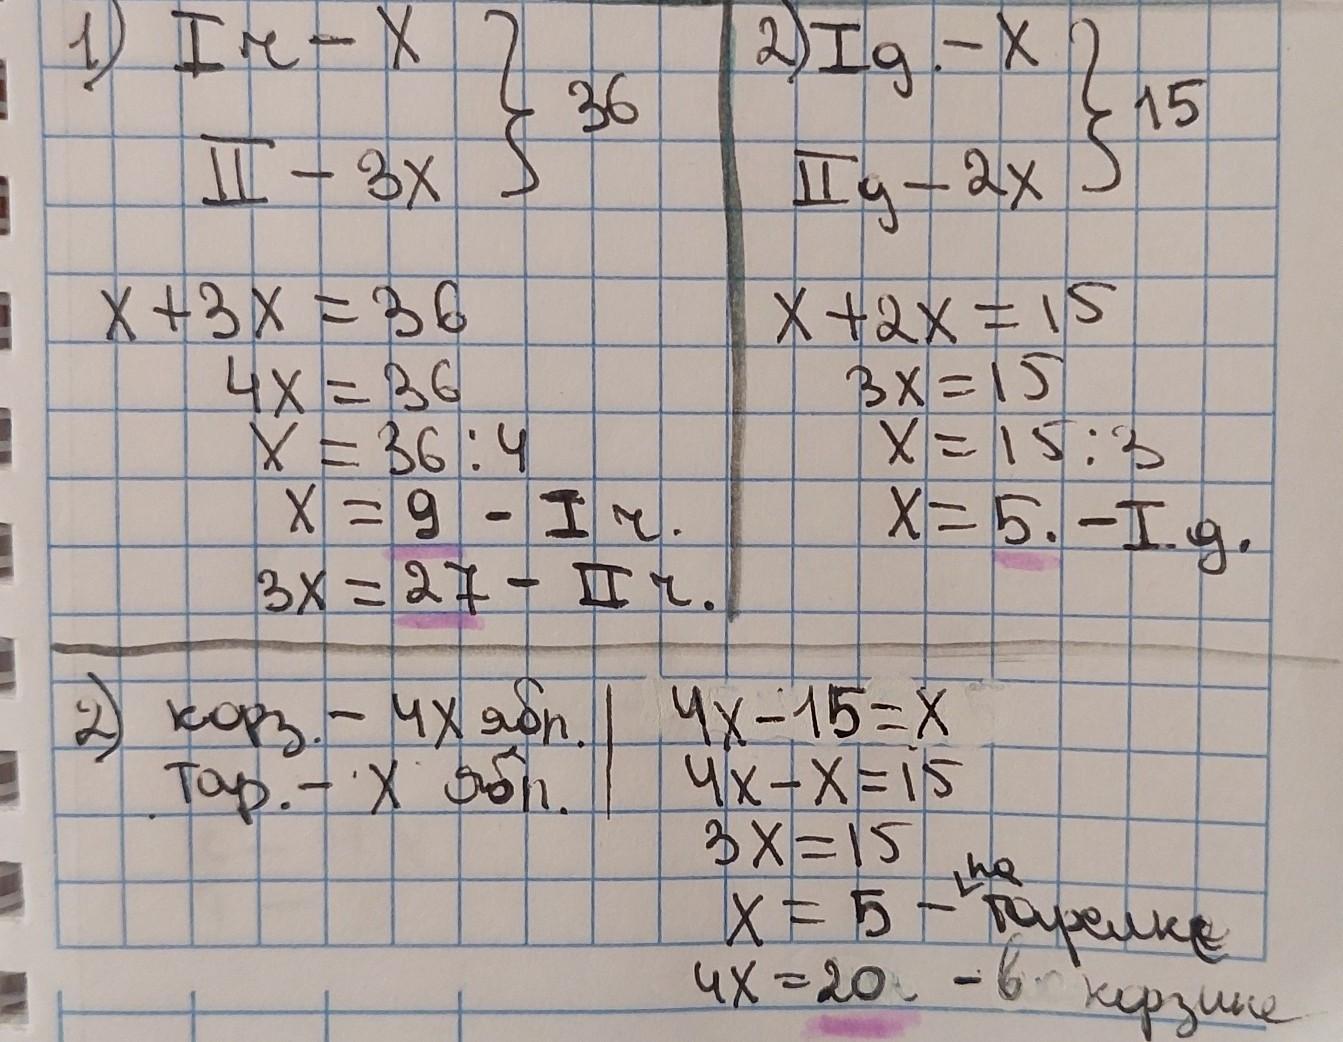 1) I ч – X } 36
II – 3X
X + 3X = 36
4X = 36
X = 36 : 4
X = 9 – I ч.
3X = 27 – II ч.
2) I д. – X } 15
II д – 2X
X + 2X = 15
3X = 15
X = 15 : 3
X = 5. – I. д.
2) корз. – 4X ябл.
Тар. – X ябл.
4X – 15 = X
4X – X = 15
3X = 15
X = 5 – на тарелке
4X = 20 – в корзине